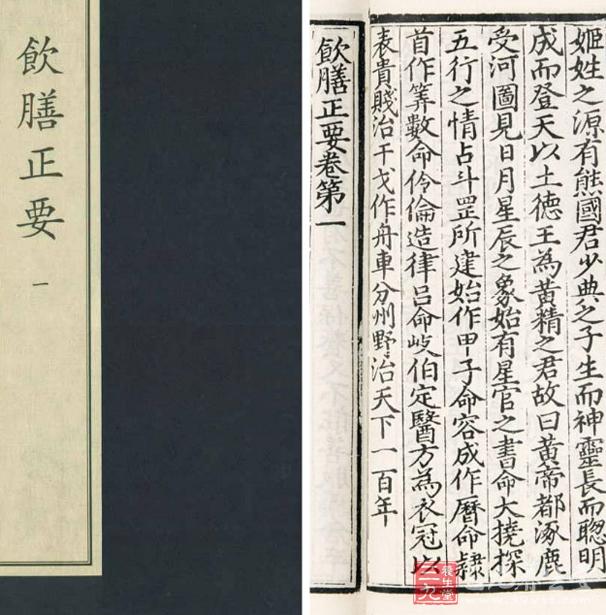 姬姓之源有熊國君少典之子生而神靈長而聰明
成而登天以土德王為黃精之君故曰黃帝都涿鹿
受河圖見日月星辰之象始有星官之書命大撓探
五行之情占斗罡所建始作甲子命容成作曆命隸
首作筭數命伶倫造律呂命岐伯定醫方為衣冠以
表貴賤治干戈作舟車分州野治天下一百年
飲膳正要卷第一
飲膳正要 一